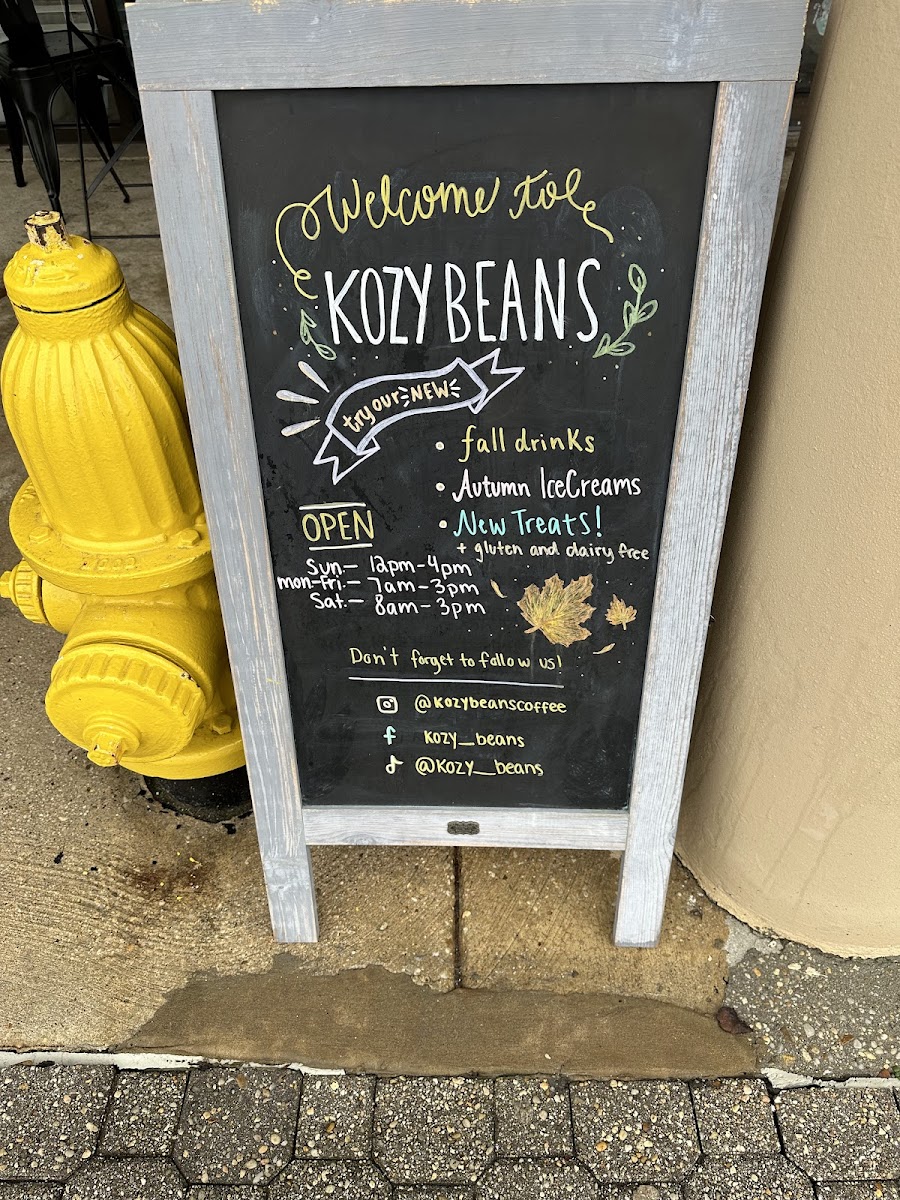 Welcome to
KOZY BEANS
try our NEW
• fall drinks
• Autumn IceCreams
• New Treats!
+ gluten and dairy free
OPEN
Sun.— 12pm-4pm
mon-Fri.— 7am-3pm
Sat.— 8am-3pm
Don't forget to follow us!
@kozybeanscoffee
f KOZY_beans
@KOZY_beans